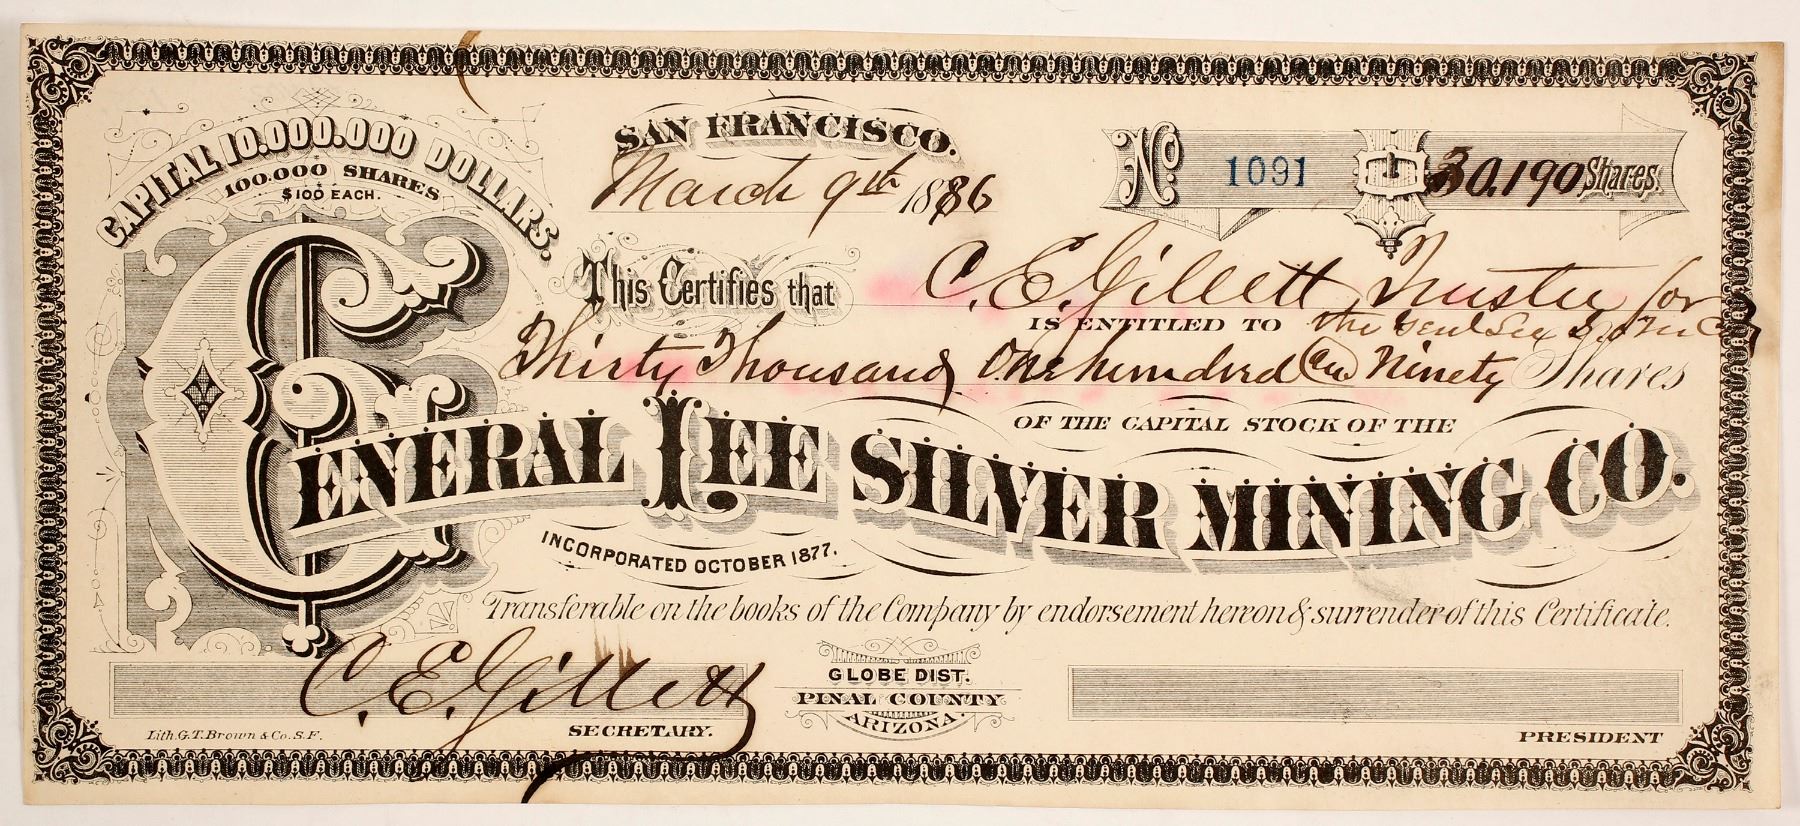 CAPITAL 10.000.000 DOLLARS.
100.000 SHARES
$100 EACH.
SAN FRANCISCO.
March 9th 1886
No. 1091 30,190 Shares.
This Certifies that C. E. Gillett Trustee for
IS ENTITLED TO the Genl Lee S. M. Co
Thirty Thousand One hundred and Ninety Shares
OF THE CAPITAL STOCK OF THE
GENERAL LEE SILVER MINING CO.
INCORPORATED OCTOBER 1877.
Transferable on the books of the Company by endorsement hereon & surrender of this Certificate.
C. E. Gillett
SECRETARY.
GLOBE DIST.
PINAL COUNTY
ARIZONA.
PRESIDENT
Lith. G.T. Brown & Co. S.F.